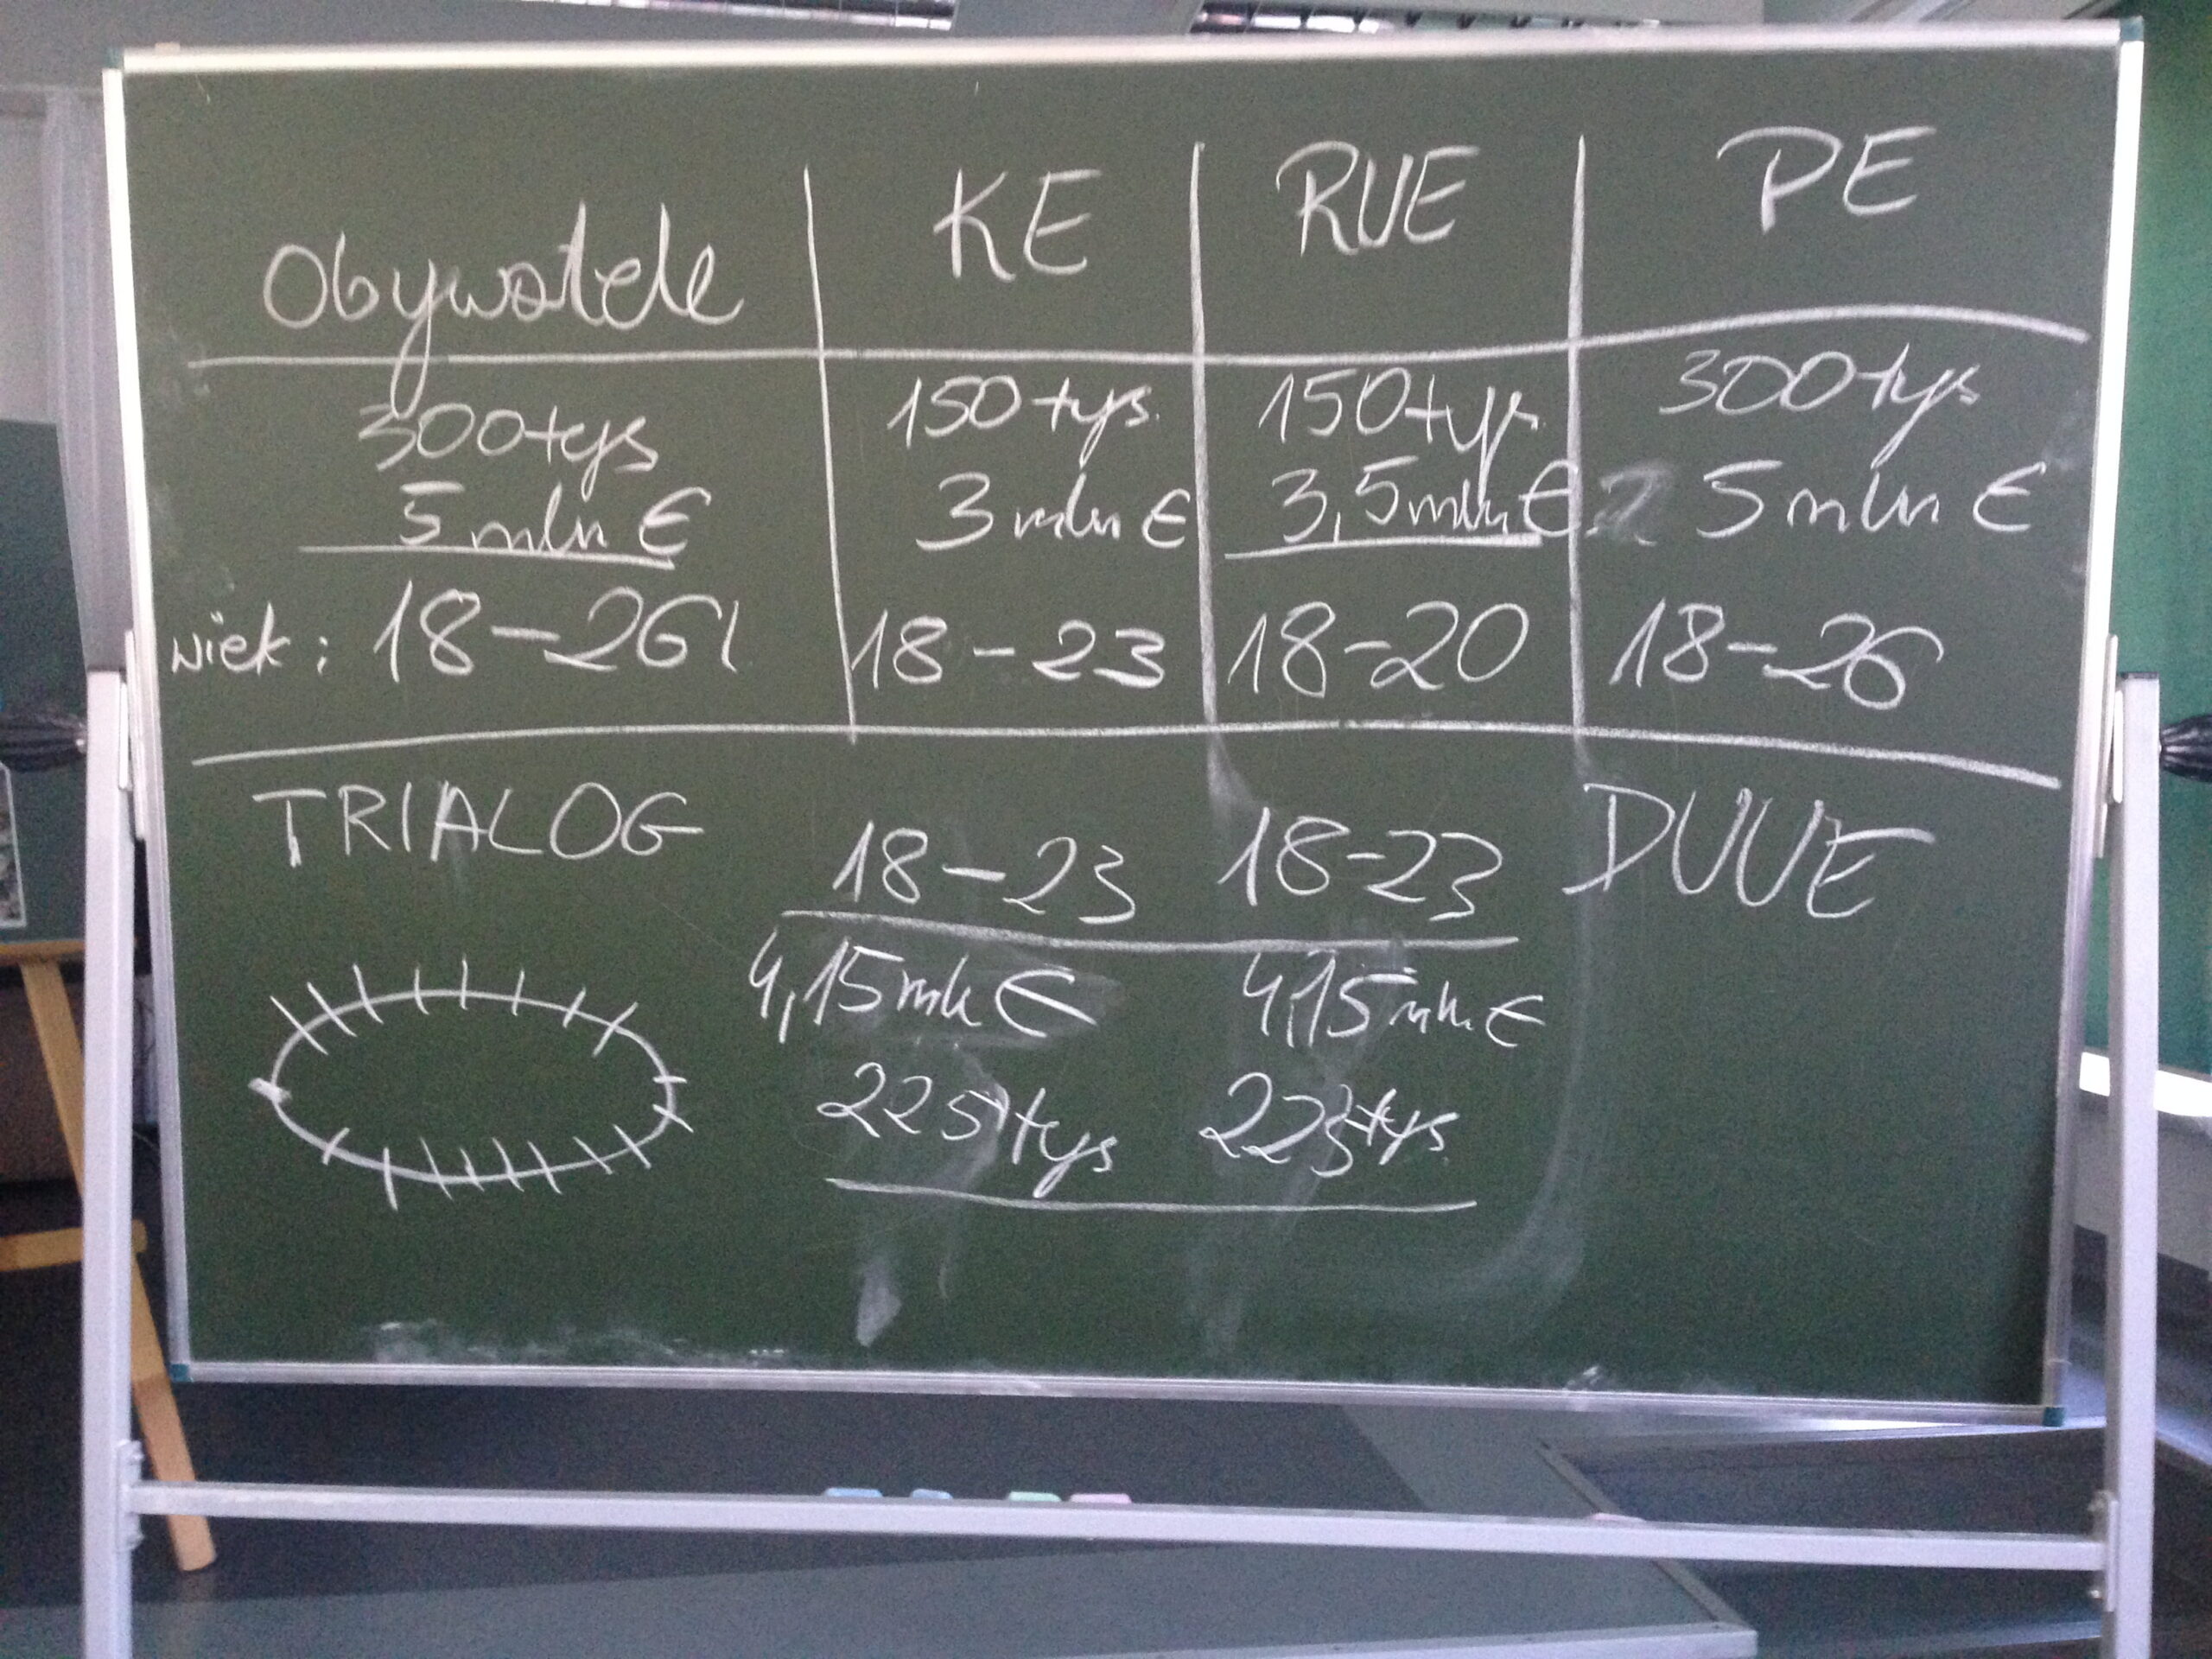 Obywatele KE RUE PE
300tys 150tys. 150tys. 300tys
5mln € 3mln € 3,5mln € 5mln €
wiek: 18-26l 18-23 18-20 18-26
TRIALOG 18-23 18-23 DUUE
4,15mln € 4,15mln €
225tys 225tys.